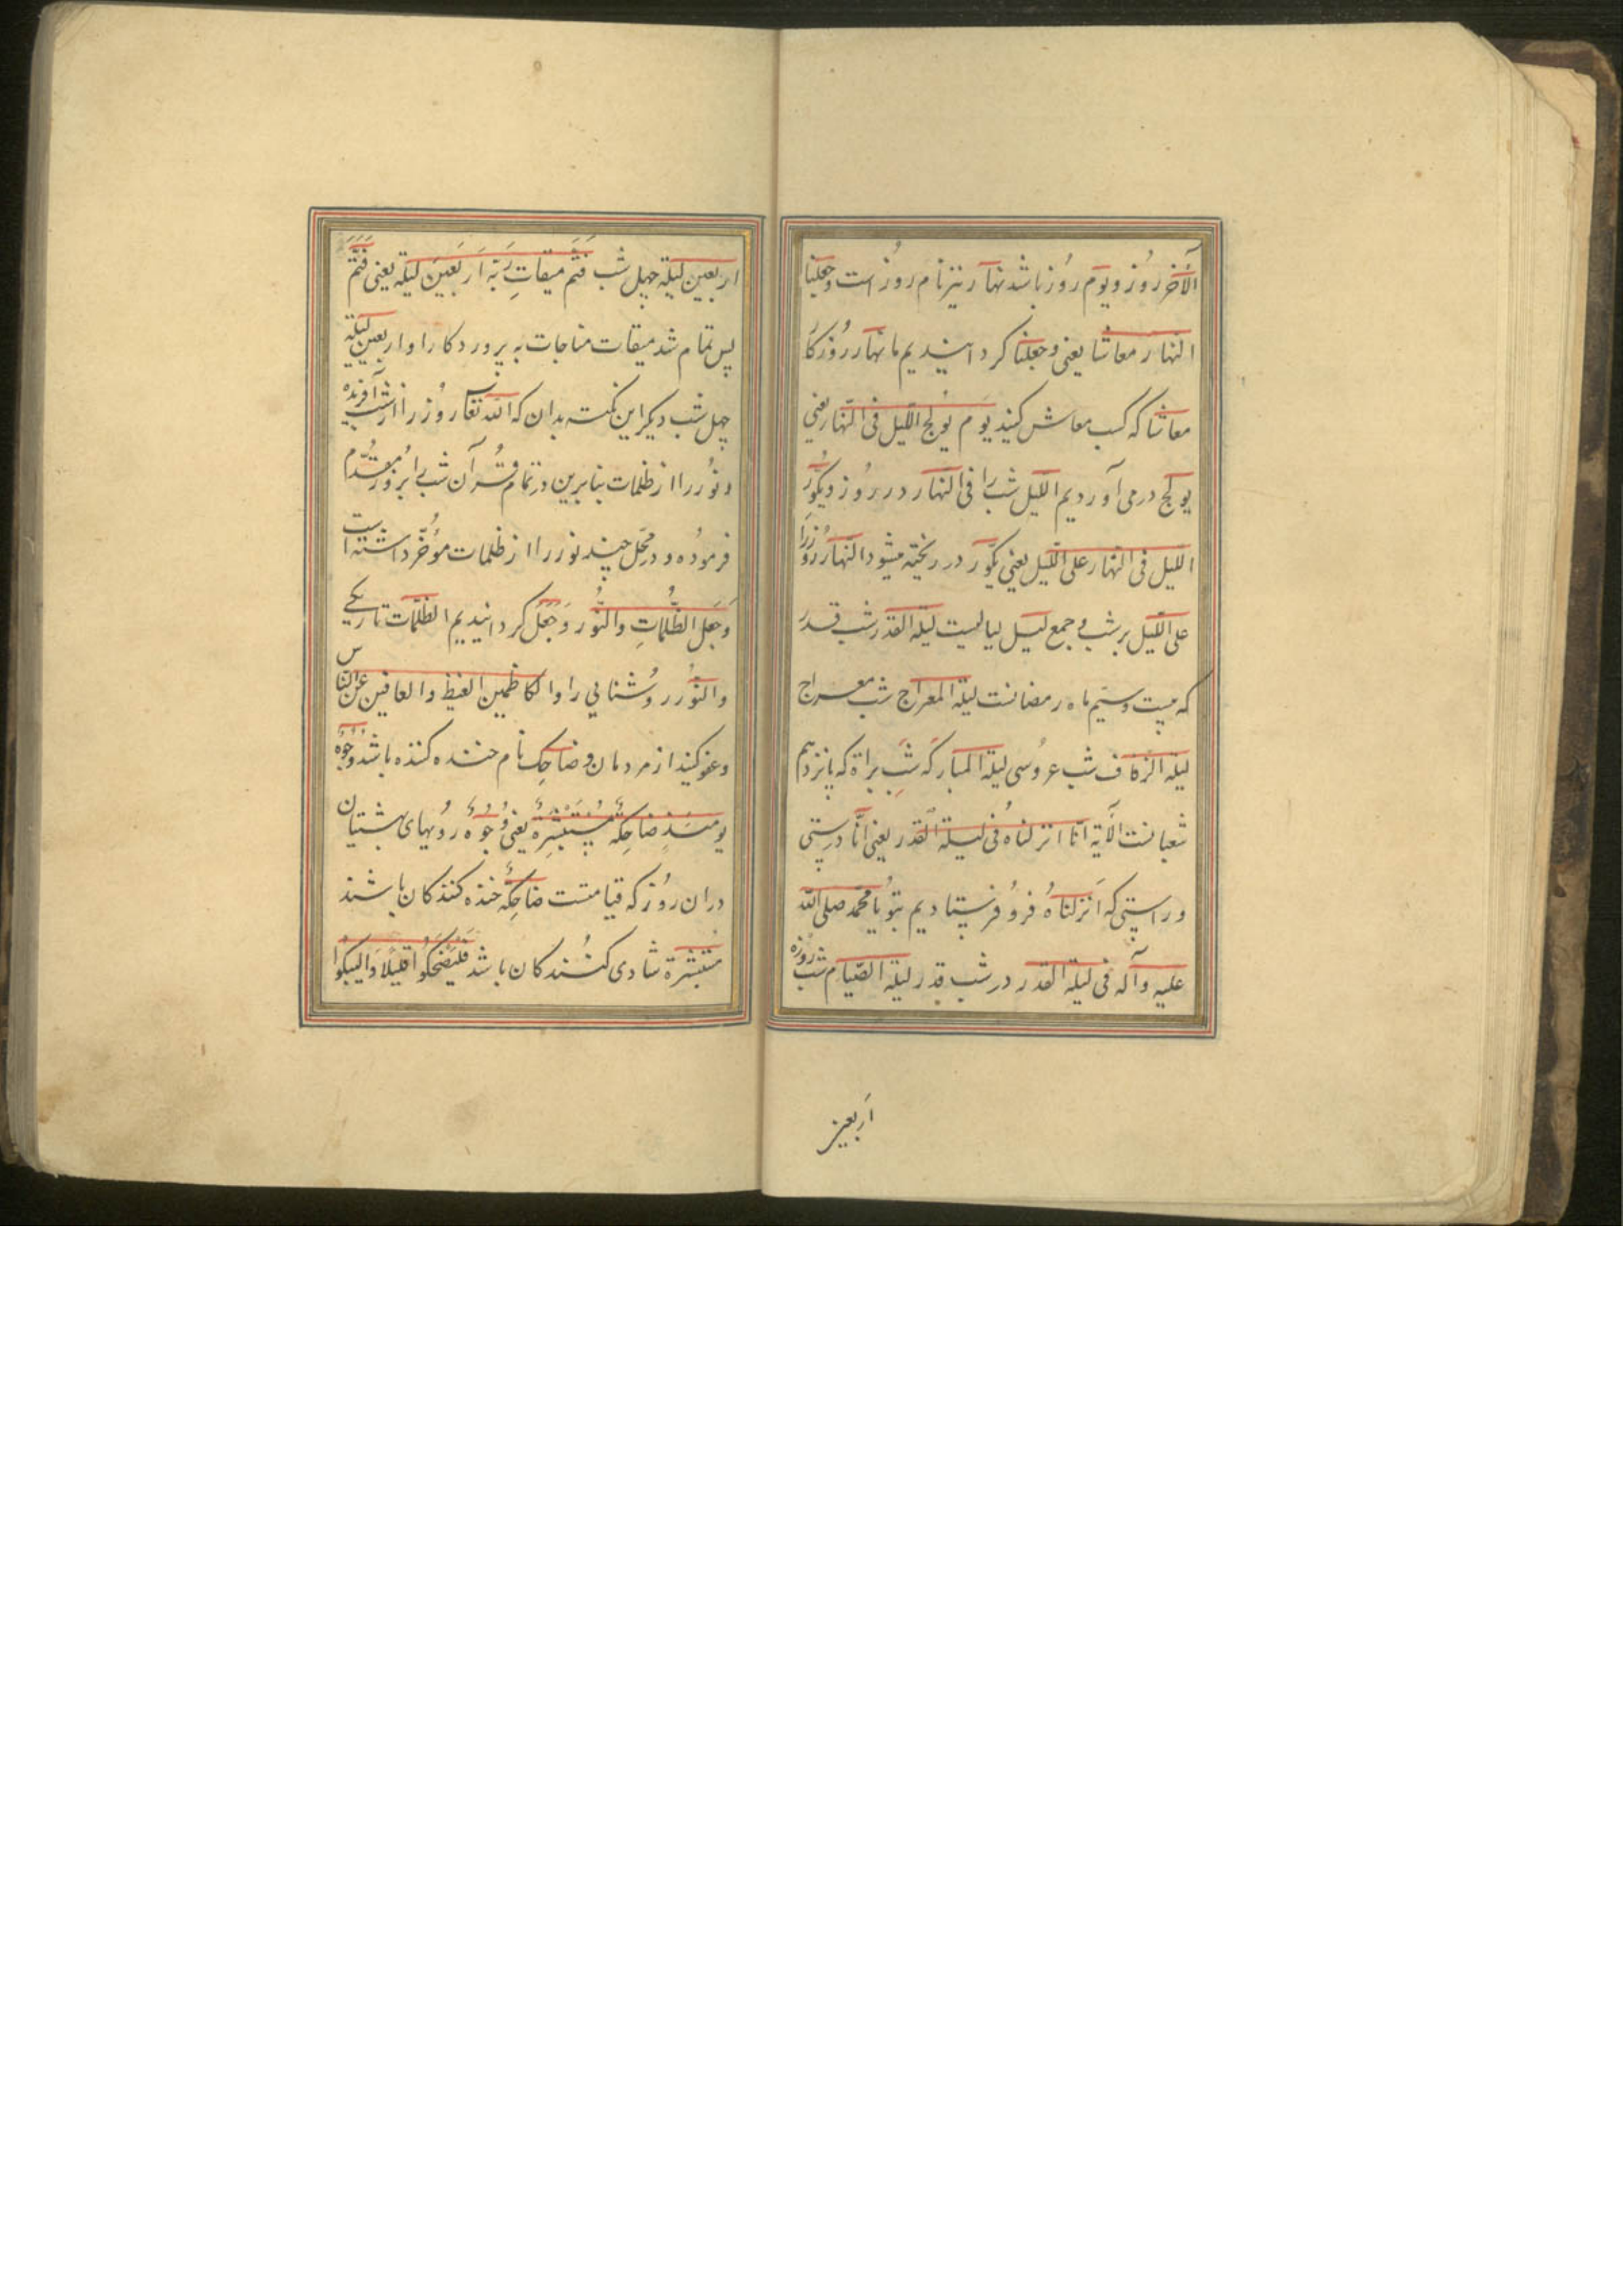 الآخر روُز و یَوم روُز باشد نهار نیز نام روُز است وجعلنا
النهار معاشا یعنی وجعلنا کردانیدیم ما نهار روُز کارَ
معاشا که کسب معاش کنید یَوم یُولج اللّیل فی النّهار یعنی
یولج درمی آوردیم اللیل شب را فی النهار در روُز ویکُوّر
اللیل فی النهار علی اللّیل یعنی یکَوّر در ریخته میشود النّهار روُزرا
علی اللّیل بر شب و جمع لیل لیالیست لیلة القدر شب قدر
که بیست وسیَم ماه رمضانست لیلة المعراج شب معراج
لیلة الزفاف شب عروُسی لیلة المبارکه شب براة که پانزدهم
شعبانست الآیة انّا انزلناهُ فی لیلة القدر یعنی انّا درستی
وراستی که اَنزلناهُ فروُ فرستادیم بتوُ یا محمّد صلی الله
علیه وآله فی لیلة القدر در شب قدر لیلة الصّیام شب روُزه
اَربعین
اربعین لیلة چهل شب فَتَم میقاتِ رَبّه اَربَعینَ لیلة یعنی فَتَمَّ
پس تمام شد میقات مناجات به پروردکار او اربعین لیلة
چهل شب دیکر این نکته بدان که الله تعا روُز را از شب آفریده
ونوُر را از ظلمات بنابرین در تمام قُرآن شب را بر روُز مقدّم
فرموُده و در محَل چند نور را از ظلمات موُخّر داشته است
وَجَعل الظُّلماتِ والنّوُر وَجَعَل کردانیدیم الظلمات تاریکی
والنوُر روُشنایی را والکاظمین الغیظ والعافین عن الناس
وعفو کنید از مردمان وضاحِک نام خنده کننده باشد وُجُوُه
یومَئذٍ ضاحِکةٌ مُستَبشِرةٌ یعنی وُجُوُهٌ روُیهای بهشتیان
دران روُز که قیامتست ضاحِکةٌ خنده کنندکان باشند
مُستبشرة شادی کنُندکان باشد فَلیَضحَکوُا قلیلاً وَالیبکوُا